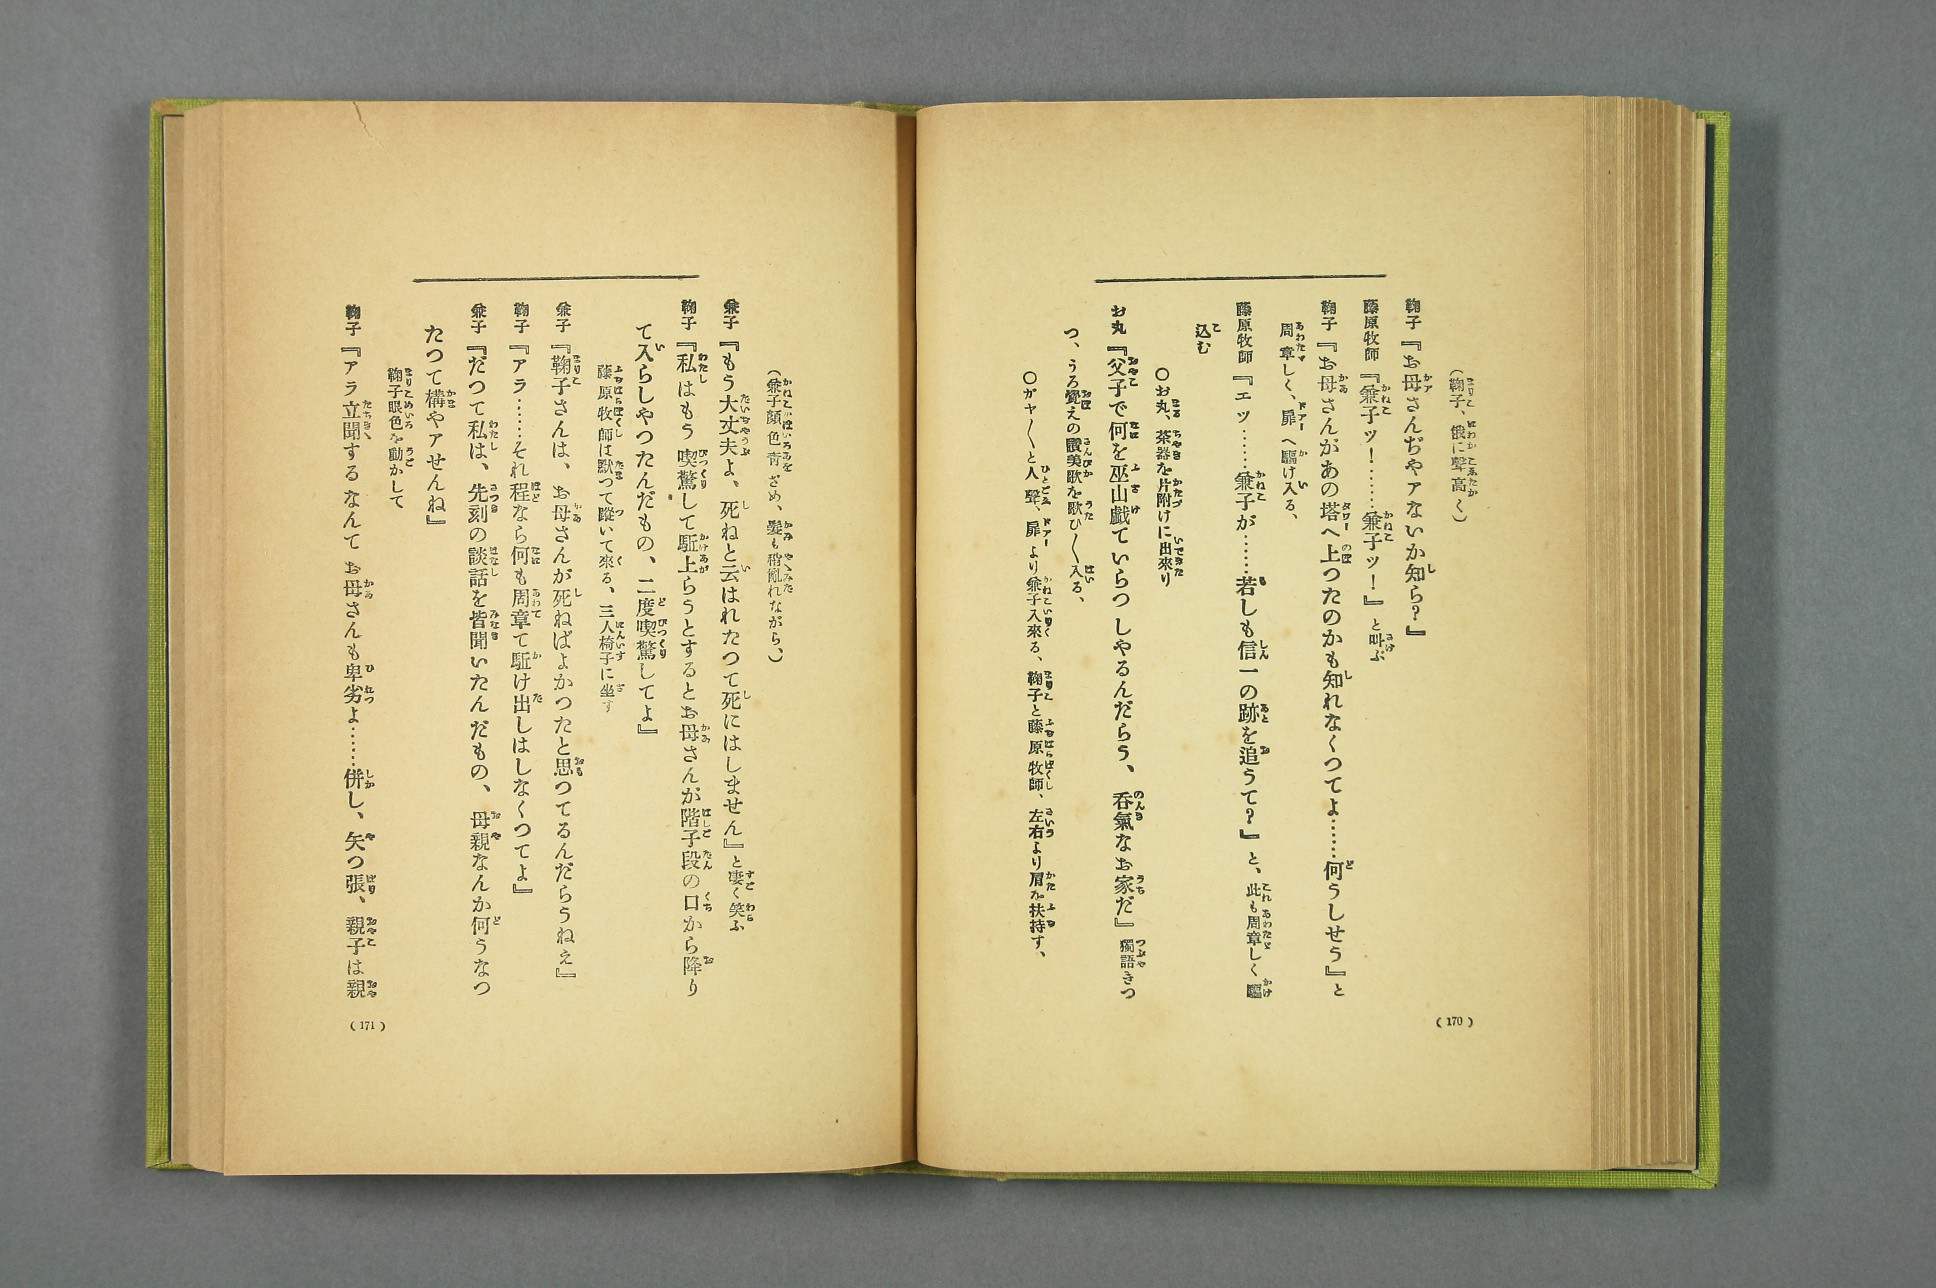 （鞠子、俄に聲高く）
鞠子『お母さんぢやアないか知ら？』
藤原牧師『兼子ッ！……兼子ッ！』と叫ぶ
鞠子『お母さんがあの塔へ上つたのかも知れなくつてよ……何うしせう』と
周章しく、扉へ驅け入る、
藤原牧師『エッ……兼子が……若しも信一の跡を追うて？』と、此も周章しく驅
込む
〇お丸、茶器を片附けに出來り
お丸『父子で何を巫山戯ていらつしやるんだらう、呑氣なお家だ』獨語きつ
つ、うろ覺えの讃美歌を歌ひ〳〵入る、
〇ガヤ〳〵と人聲、扉より兼子入來る、鞠子と藤原牧師、左右より肩を扶持す、
（170）
（兼子顏色青ざめ、髮も稍亂れながら、）
兼子『もう大丈夫よ、死ねと云はれたつて死にはしません』と凄く笑ふ
鞠子『私はもう喫驚して駈上らうとするとお母さんが階子段の口から降り
て入らしやつたんだもの、二度喫驚してよ』
藤原牧師は默つて蹤いて來る、三人椅子に坐す
兼子『鞠子さんは、お母さんが死ねばよかつたと思つてるんだらうねえ』
鞠子『アラ……それ程なら何も周章て駈け出しはしなくつてよ』
兼子『だつて私は、先刻の談話を皆聞いたんだもの、母親なんか何うなつ
たつて構やアせんね』
鞠子眼色を動かして
鞠子『アラ立聞するなんてお母さんも卑劣よ……併し、矢つ張、親子は親
（171）